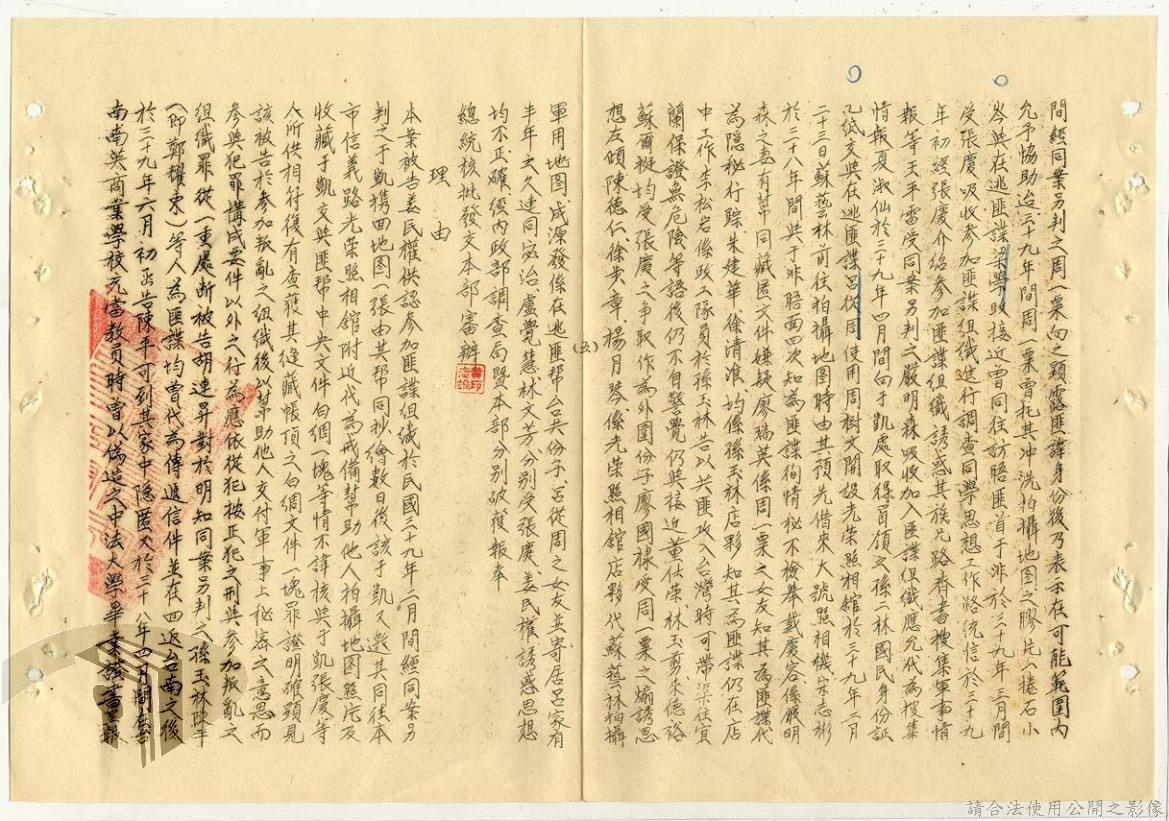 間經同案另判之周一粟向之顯露匪諜身份後乃表示在可能範圍內
允予協助迨三十九年間周一粟曾托其冲洗拍攝地圖之膠片一捲石小
岑與在逃匪諜梁學政接近曾同往訪晤匪首于非於三十九年三月間
受張慶吸收參加匪諜組織進行調查同學思想工作路統信於三十九
年初經張慶介紹參加匪諜組織誘惑其族兄路齊書搜集軍事情
報等王平雷受同案另判之嚴明森吸收加入匪諜組織應允代為搜集
情報夏淑仙於三十九年四月間向于凱處取得冒領之孫二林國民身份証
乙紙交與在逃匪諜呂從周使用周樹文開設光榮照相館於三十九年二月
二十三日蘇藝林前往拍攝地圖時由其預先借來大號照相機宋志彬
於三十八年間與于非晤面四次知為匪諜徇情秘不檢舉戴廣容係嚴明
森之妻有幫同藏匿文件嫌疑廖瑞英係周一粟之女友知其為匪諜代
為隱秘行踪朱建華徐清淮均係孫玉林店夥知其為匪諜仍在店
中工作李松岩係政工隊員於孫玉林告以共匪攻入台灣時可帶渠往宜
蘭保證無危險等語後仍不自警覺仍與接近董仕榮林玉剪來德詒
蘇爾挺均受張慶之爭取作為外圍份子廖國祿受周一粟之煽誘思
想左傾陳德仁徐步章楊月琴係光榮照相館店夥代蘇藝林拍攝
(五)
軍用地圖成源發係在逃匪幫台共份子呂從周之女友並寄居呂家有
半年之久連同宓治盧覺慧林文芳分別受張慶姜民權誘惑思想
均不正確經內政部調查局暨本部分別破獲報奉
總統核批發交本部審辦
理由
本案被告姜民權供認參加匪諜組織於民國三十九年二月間經同案另
判之于凱攜面地圖一張由其帮同抄繪數日後該于凱又邀其同往本
市信義路光榮照相館附近代為戒備幫助他人拍攝地圖照片及
收藏于凱交與匪幫中央文件白綢一塊等情不諱核與于凱張慶等
人所供相符復有查獲其逢藏帳頂之白綢文件一塊罪證明確顯見
該被告於參加叛亂之組織後以幫助他人交付軍事上秘密之意思而
參與犯罪構成要件以外之行為應依從犯按正犯之刑與參加叛亂之
組織罪從一重處断被告胡連昇對於明知同案另判之孫玉林陳平
(即鄭耀東)等人為匪諜均曾代為傳遞信件並在四返台南之後
於三十九年六月初函告陳平可到其家中隱匿又於三十八年四月間在台
南南英商業學校充當教員時曾以偽造之中法大學畢業證書呈報
請合法使用公開之影像